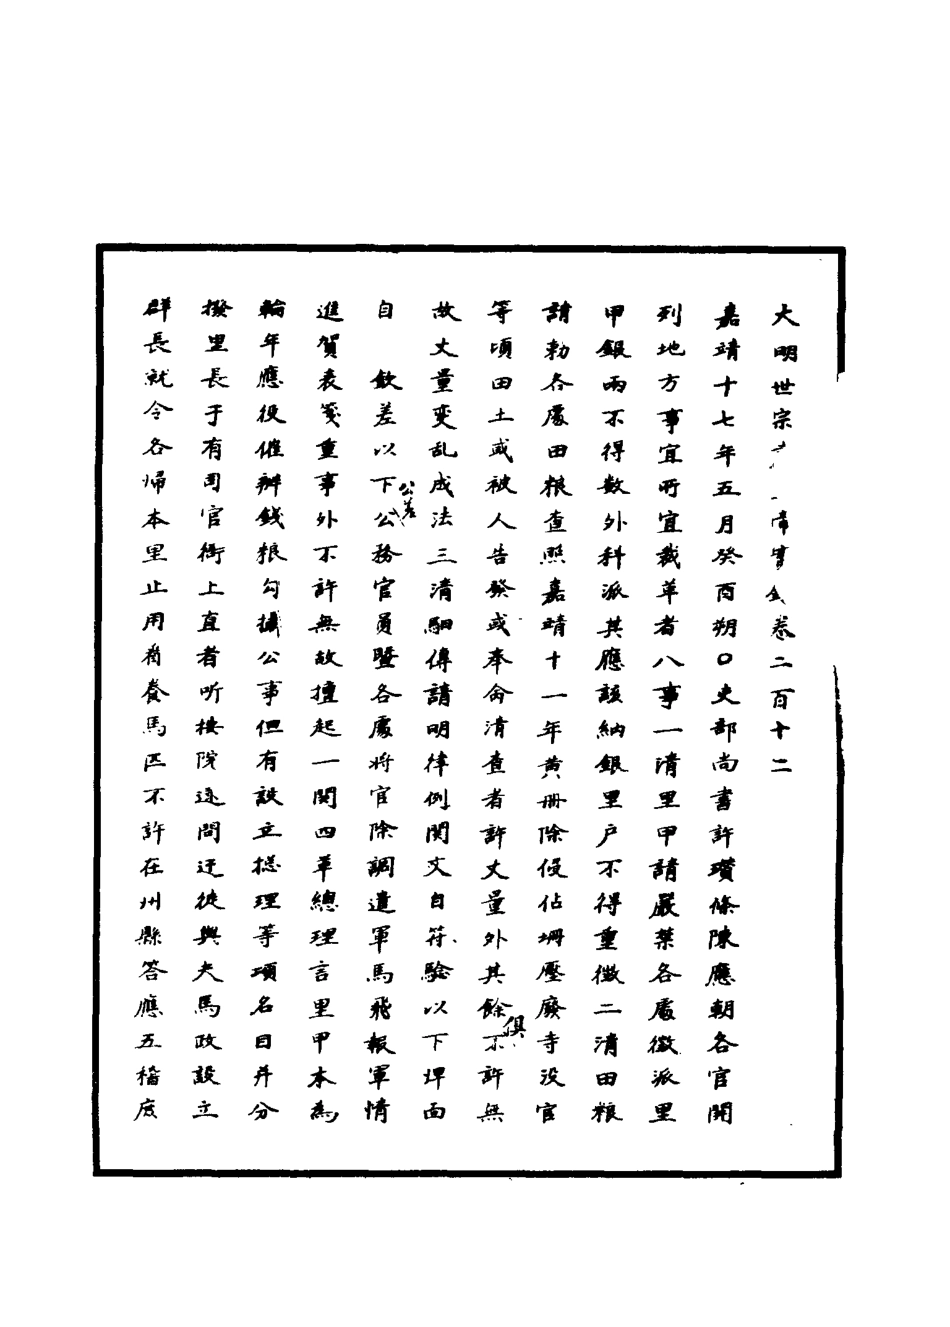 大明世宗　　帝寶　卷二百十二
嘉靖十七年五月癸酉朔○吏部尚書許瓚條陳應朝各官開
列地方事宜所宜裁革者八事一清里甲請嚴禁各處徵派里
甲銀兩不得数外科派其應該納銀里户不得重徵二清田粮
請勅各處田粮查照嘉靖十一年黄册除侵佔坍壓廢寺没官
等項田土或被人告發或奉侖清查者許丈量外其餘俱不許無
故丈量变乱成法三清駟傳請明律例関文自符验以下焊面
自　欽差以下公差公務官員暨各處将官除調遣軍馬飛報軍情
進賀表箋重事外不許無故擅起一関四革總理言里甲本為
輪年應役催辦錢粮勾攝公事但有設立捴理等項名目并分
撥里長于有司官衙上直者听按院逐問迁徙與夫馬政設立
群長就令各帰本里止用看養馬匹不許在州縣答應五稽庶